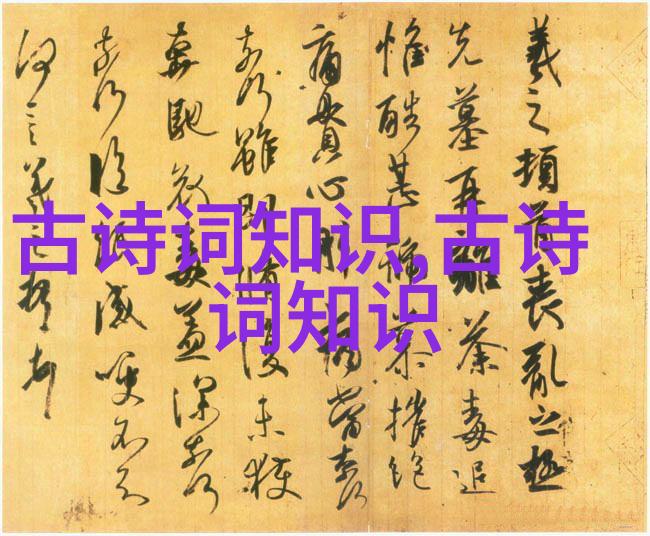 古诗词知识,古诗
词知识
羲之頓首喪亂之極
先墓再離荼毒追
惟酷甚號慕摧絕
痛貫心肝痛當奈何
奈何雖即脩復未獲
奔馳哀毒益深奈何
奈何臨紙感哽不知
何言羲之頓首